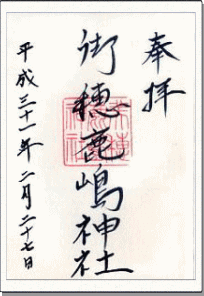 奉拝
御穂鹿嶋神社
平成三十一年二月二十七日